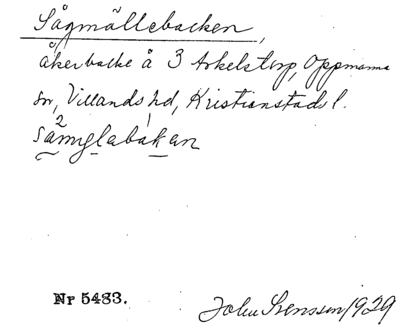 Sågmöllebacken,
åkerbacke å 3 Arkelstorp, Oppmanna
sn, Villands hd, Kristianstads l.
Nr 5483.
John Svensson 1929